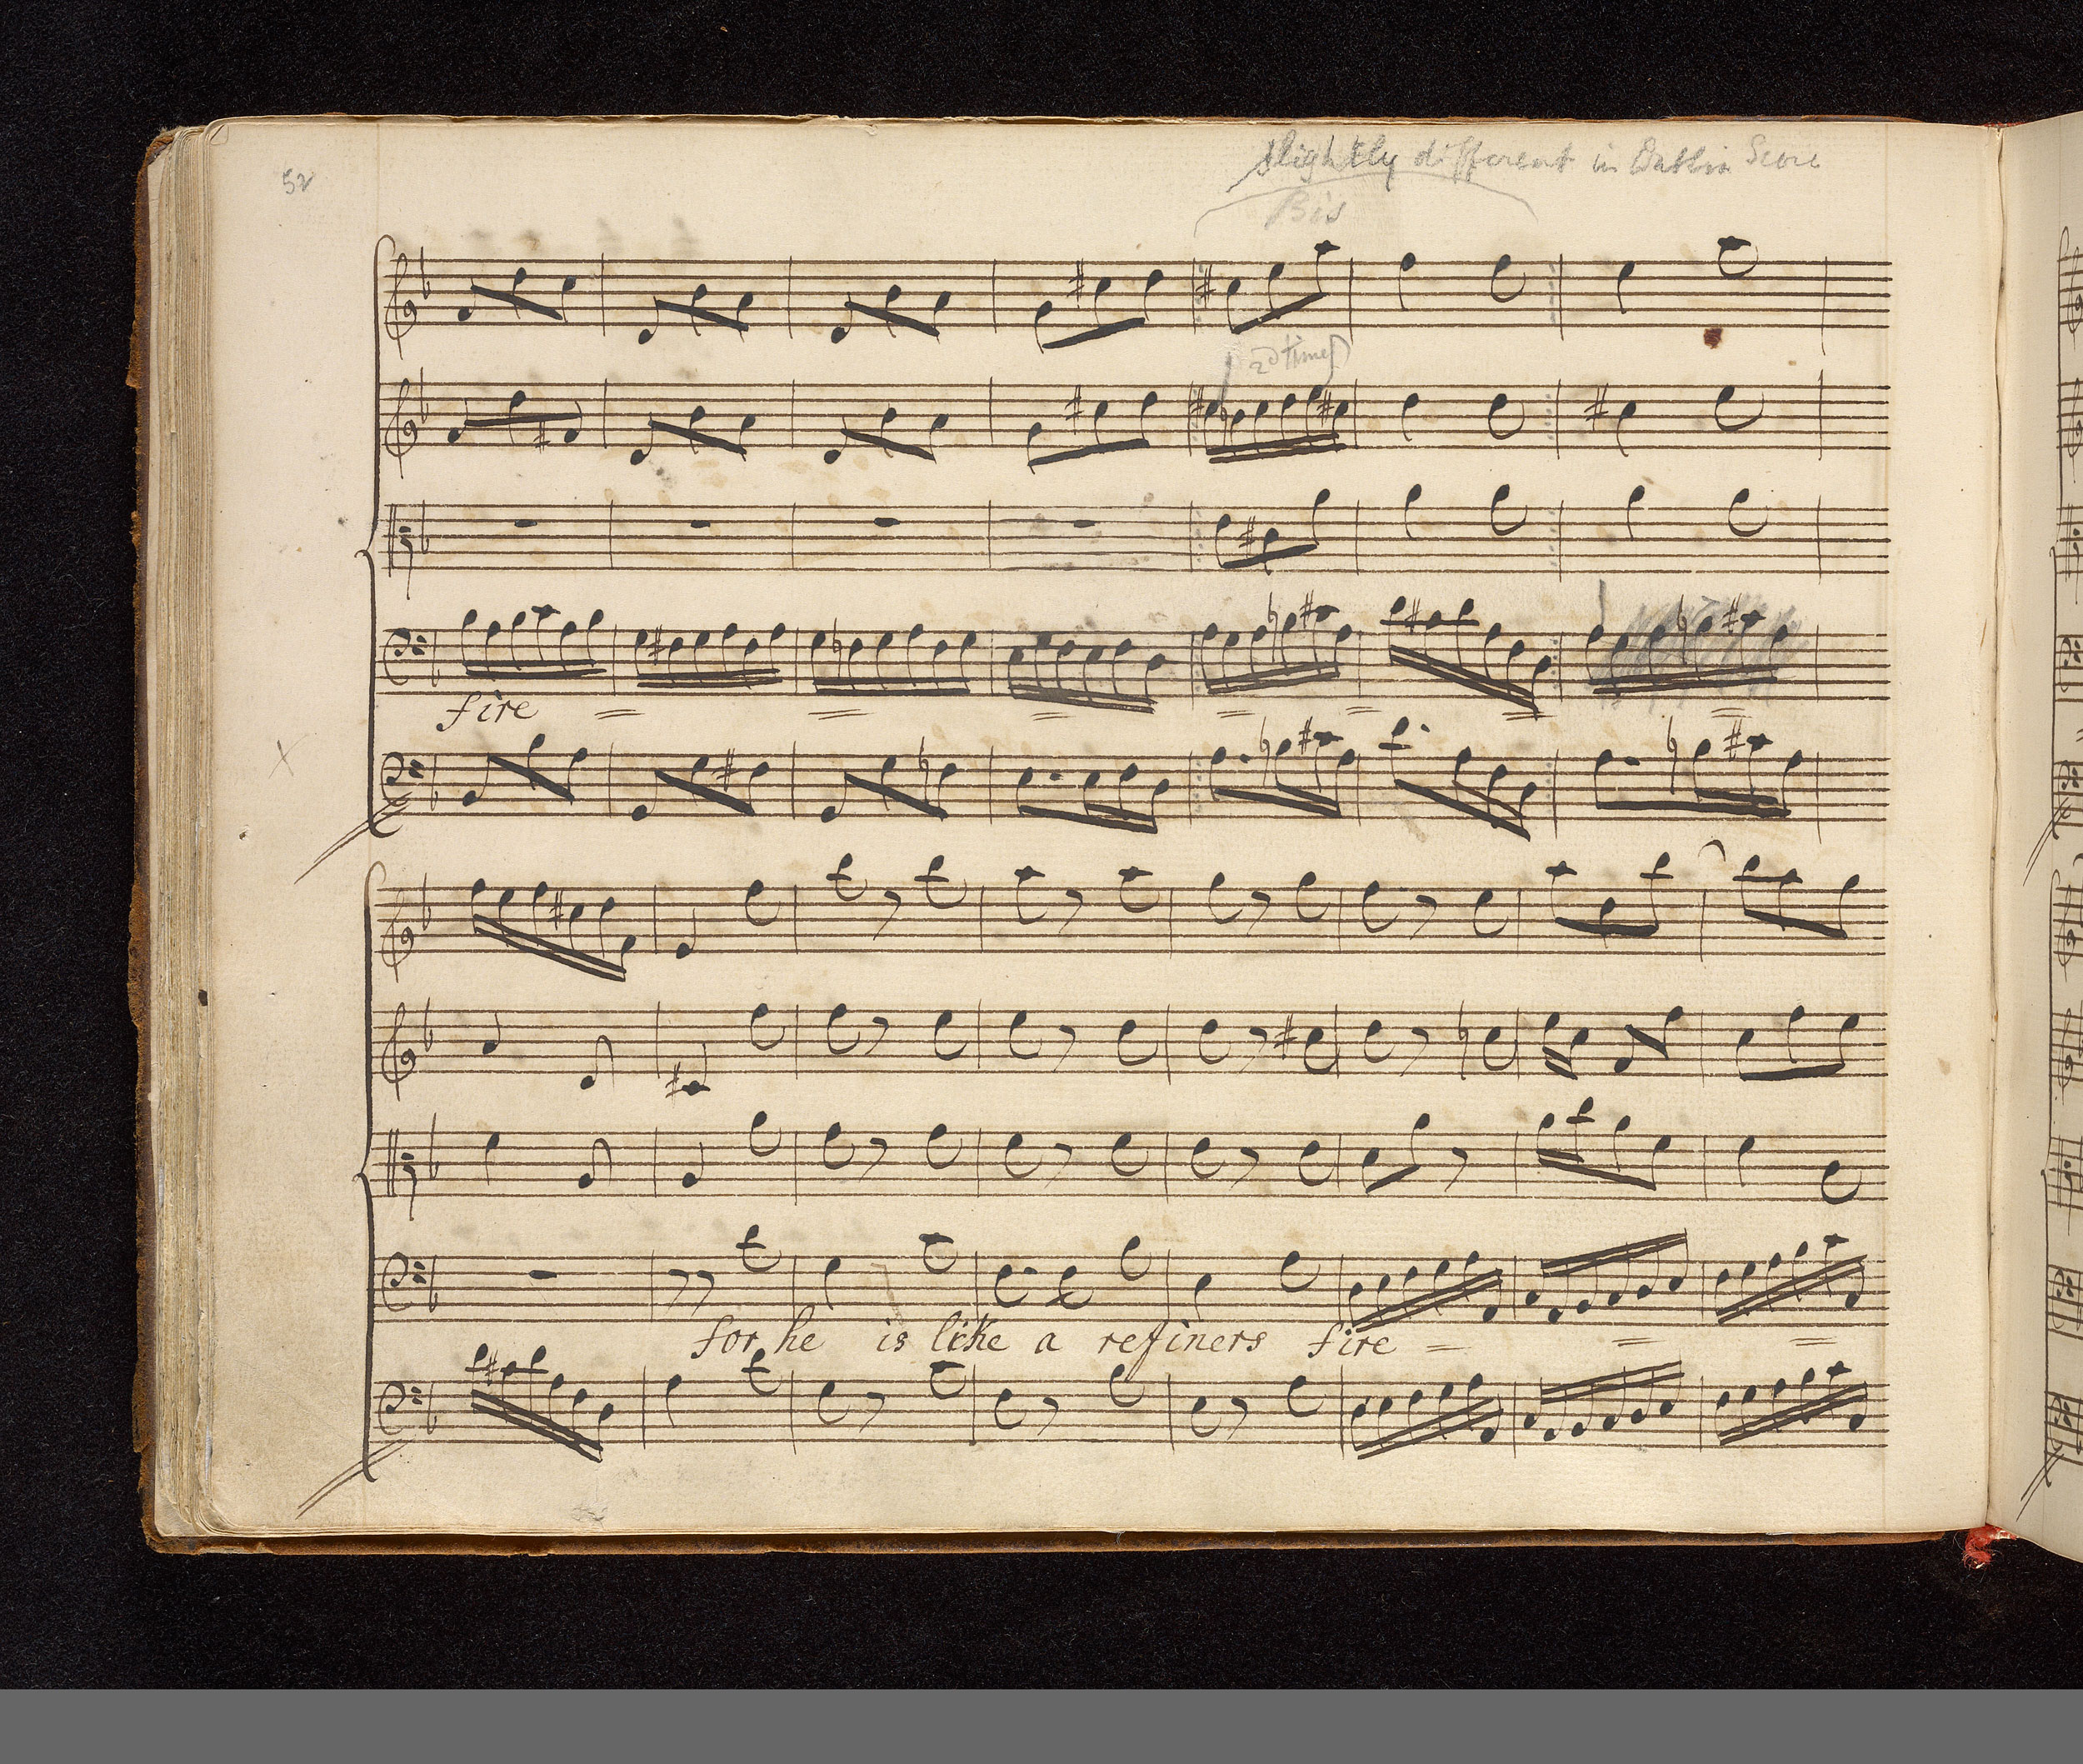 52
slightly different in Dublin Score
Bis
2d time
fire = = = = = = =
for he is like a refiners fire = = =